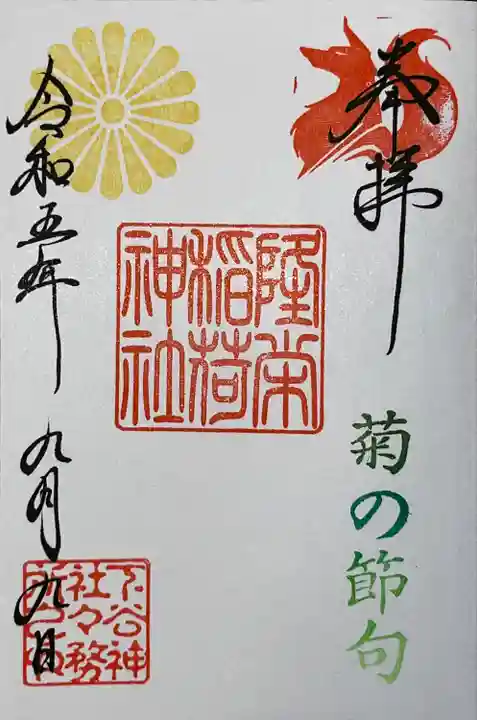 奉拝
菊の節句
隆栄
稲荷
神社
令和五年 九月九日
下谷神
社々務
所之印